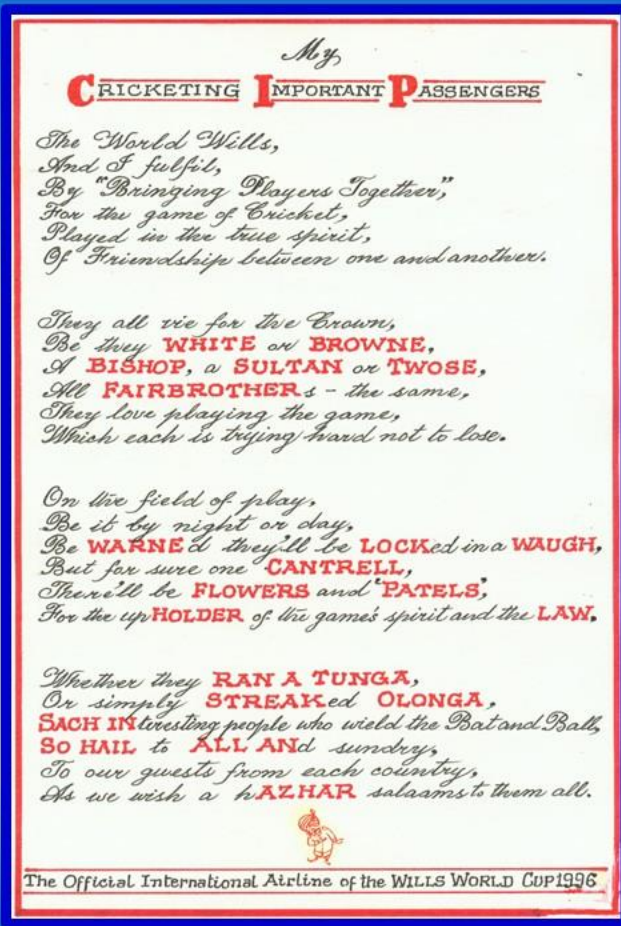 My
CRICKETING IMPORTANT PASSENGERS
The World Wills,
And I fulfil,
By "Bringing Players Together",
For the game of Cricket,
Played in the true spirit,
Of Friendship between one and another.
They all vie for the Crown,
Be they WHITE or BROWNE,
A BISHOP, a SULTAN or TWOSE,
All FAIRBROTHERs - the same,
They love playing the game,
Which each is trying hard not to lose.
On the field of play,
Be it by night or day,
Be WARNEd they'll be LOCKed in a WAUGH,
But for sure one CANTRELL,
There'll be FLOWERS and "PATELS",
For the upHOLDER of the game's spirit and the LAW.
Whether they RAN A TUNGA,
Or simply STREAKed OLONGA,
SACH INteresting people who wield the Bat and Ball,
SO HAIL to ALL ANd sundry,
To our guests from each country,
As we wish a hAZHAR salaams to them all.
The Official International Airline of the WILLS WORLD CUP 1996